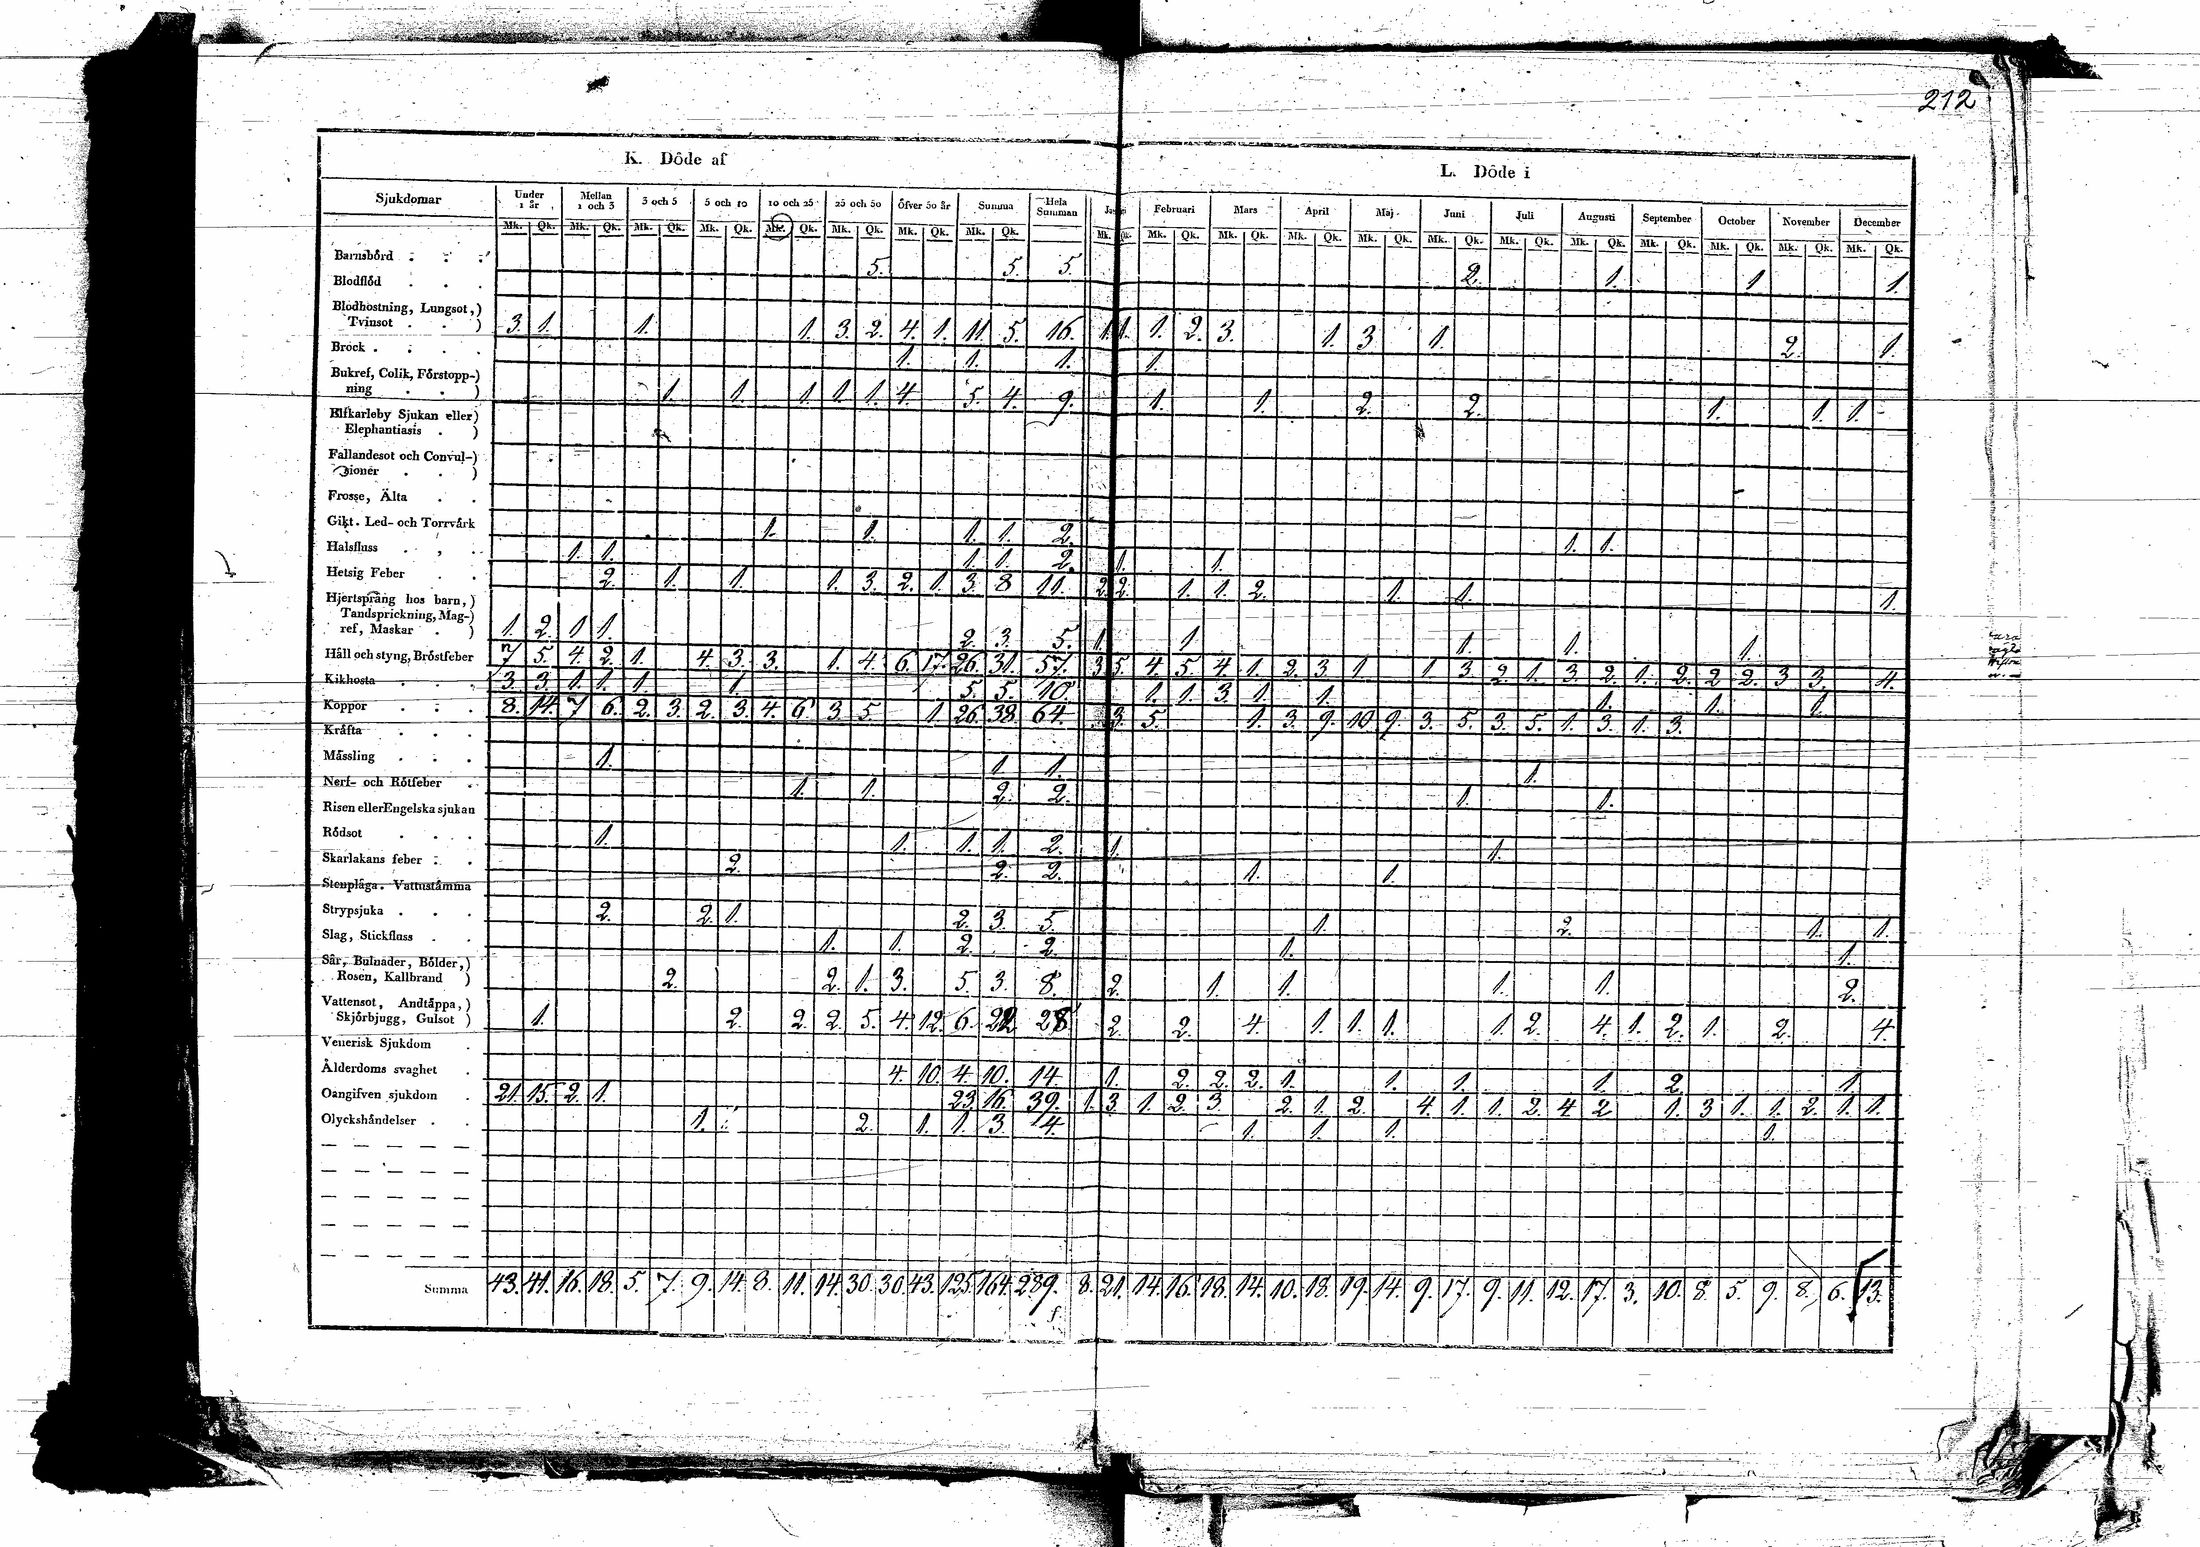 212
K. Döde af L. Döde i
Sjukdomar Under 1 år Mellan 1 och 3 3 och 5 5 och 10 10 och 25 25 och 50 Öfver 50 år Summa Hela Summan Februari Mars April Maj Juni Juli Augusti September October November December
Mk. Qk. Mk. Qk. Mk. Qk. Mk. Qk. Mk. Qk. Mk. Qk. Mk. Qk. Mk. Qk. Mk. Qk. Mk. Qk. Mk. Qk. Mk. Qk. Mk. Qk. Mk. Qk. Mk. Qk. Mk. Qk. Mk. Qk. Mk. Qk. Mk. Qk. Mk. Qk.
Barnsbörd 5. 5. 5. 2. 1. 1. 1.
Blodflöd
Blodhostning, Lungsot,)
Tvinsot ) 3. 1. 1. 1. 3. 2. 4. 1. 11. 5. 16. 1. 1. 1. 2. 3. 1. 3. 1. 2. 1.
Bröck 1. 1. 1. 1.
Bukref, Colik, Förstopp-)
ning ) 1. 1. 1. 1. 1. 4. 5. 4. 9. 1. 1. 2. 2. 1. 1. 1.
Elfkarleby Sjukan eller)
Elephantiasis )
Fallandesot och Convul-)
sioner )
Frosse, Älta
Gikt. Led- och Torrvärk 1. 1. 1. 1. 2. 1. 1.
Halsfluss 1. 1. 1. 1. 2. 1. 1.
Hetsig Feber 2. 1. 1. 1. 3. 2. 1. 3. 8 11. 2. 2. 1. 1. 2. 1. 1. 1.
Hjertsprång hos barn,)
Tandsprickning, Mag-)
ref, Maskar ) 1. 2. 1. 1. 2. 3. 5. 1. 1. 1. 1. 1.
Håll och styng, Bröstfeber 7 5. 4. 2. 1. 4. 3. 3. 1. 4. 6. 17. 26. 31. 57. 3 5. 4. 5. 4. 1. 2. 3. 1. 1. 3. 2. 1. 3. 2. 1. 2. 2 2. 3 3. 4.
Kikhosta 3. 3. 1. 1. 1. 1. 5. 5. 10. 1. 1. 3. 1. 1. 1. 1. 1.
Koppor 8. 14. 7 6. 2. 3. 2. 3. 4. 6 3. 5. 1. 26. 38. 64. 3. 5. 1. 3. 9. 10 9. 3. 5. 3. 5. 1. 3. 1. 3.
Kräfta
Mässling 1. 1 1. 1.
Nerf- och Rötfeber 1. 1. 2. 2. 1. 1.
Risen eller Engelska sjukan
Rödsot 1. 1. 1. 1. 2. 1. 1.
Skarlakans feber 2. 2. 2. 1. 1.
Stenplåga. Vattustämma
Strypsjuka 2. 2. 1. 2. 3. 5. 1. 2. 1. 1.
Slag, Stickfluss 1. 1. 2. 2. 1. 1.
Sår, Bulnader, Bölder,)
Rosen, Kallbrand ) 2. 2. 1. 3. 5. 3. 8. 2. 1. 1. 1. 1. 2.
Vattensot, Andtäppa,)
Skjörbjugg, Gulsot ) 1. 2. 2. 2. 5. 4. 12. 6. 22 28 2. 2. 4. 1. 1. 1. 1. 2. 4. 1. 2. 1. 2. 4.
Venerisk Sjukdom
Ålderdoms svaghet 4. 10. 4. 10. 14. 1. 2. 2. 2. 1. 1. 1. 1. 2. 1.
Oangifven sjukdom 21. 15. 2. 1. 23. 16. 39. 1. 3. 1. 2. 3. 2. 1. 2. 4. 1. 1. 2. 4 2 1. 3 1. 1. 2. 1. 1.
Olyckshändelser 1. 2. 1. 1. 3. 4. 1. 1. 1. 1.
Summa 43. 41. 16. 18. 5. 7. 9. 14. 8. 11. 14. 30. 30. 43. 125. 164. 289. 8. 21. 14. 16. 18. 14. 10. 18. 19. 14. 9. 17. 9. 11. 12. 17. 3. 10. 8 5. 9. 8. 6. 13.